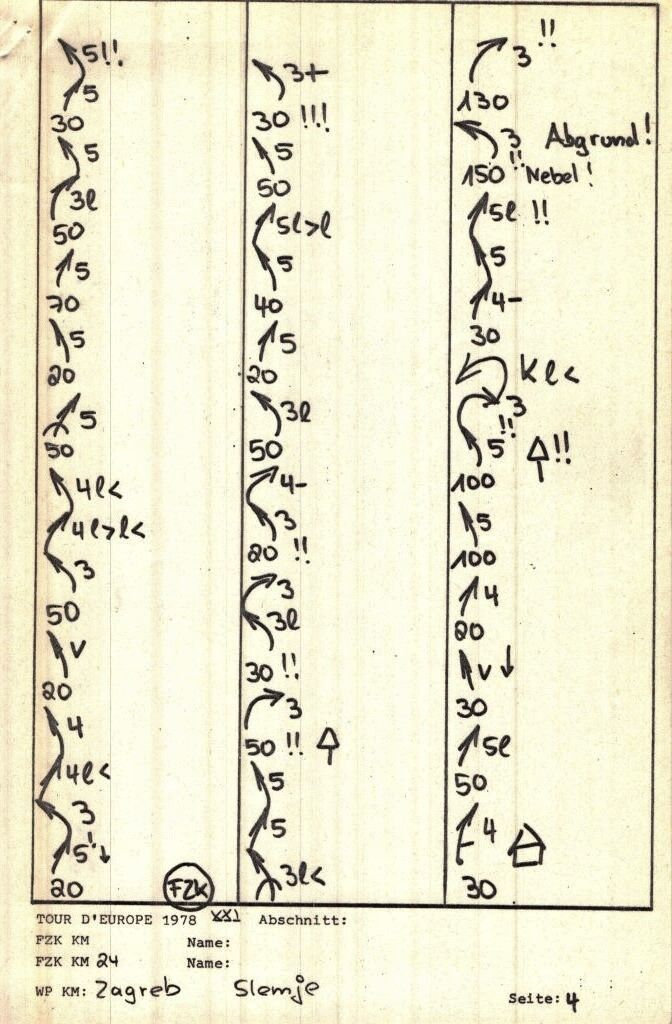 5!!
5
30
5
3l
50
5
70
5
20
5
50
4l<
4l>l<
3
50
v
20
4
4l<
3
5'↓
20
FZK
3+
30 !!!
5
50
5l>l
5
40
5
20
3l
50
4-
3
20 !!
3
3l
30 !!
3
50 !!
5
5
3l<
3 !!
130
3 Abgrund!
150 !! Nebel!
5l !!
5
4-
30
Kl<
3
5 !! !!
100
5
100
4
20
v ↓
30
5l
50
4
30
TOUR D'EUROPE 1978 XXI Abschnitt:
FZK KM Name:
FZK KM 24 Name:
WP KM: Zagreb Slemje
Seite: 4